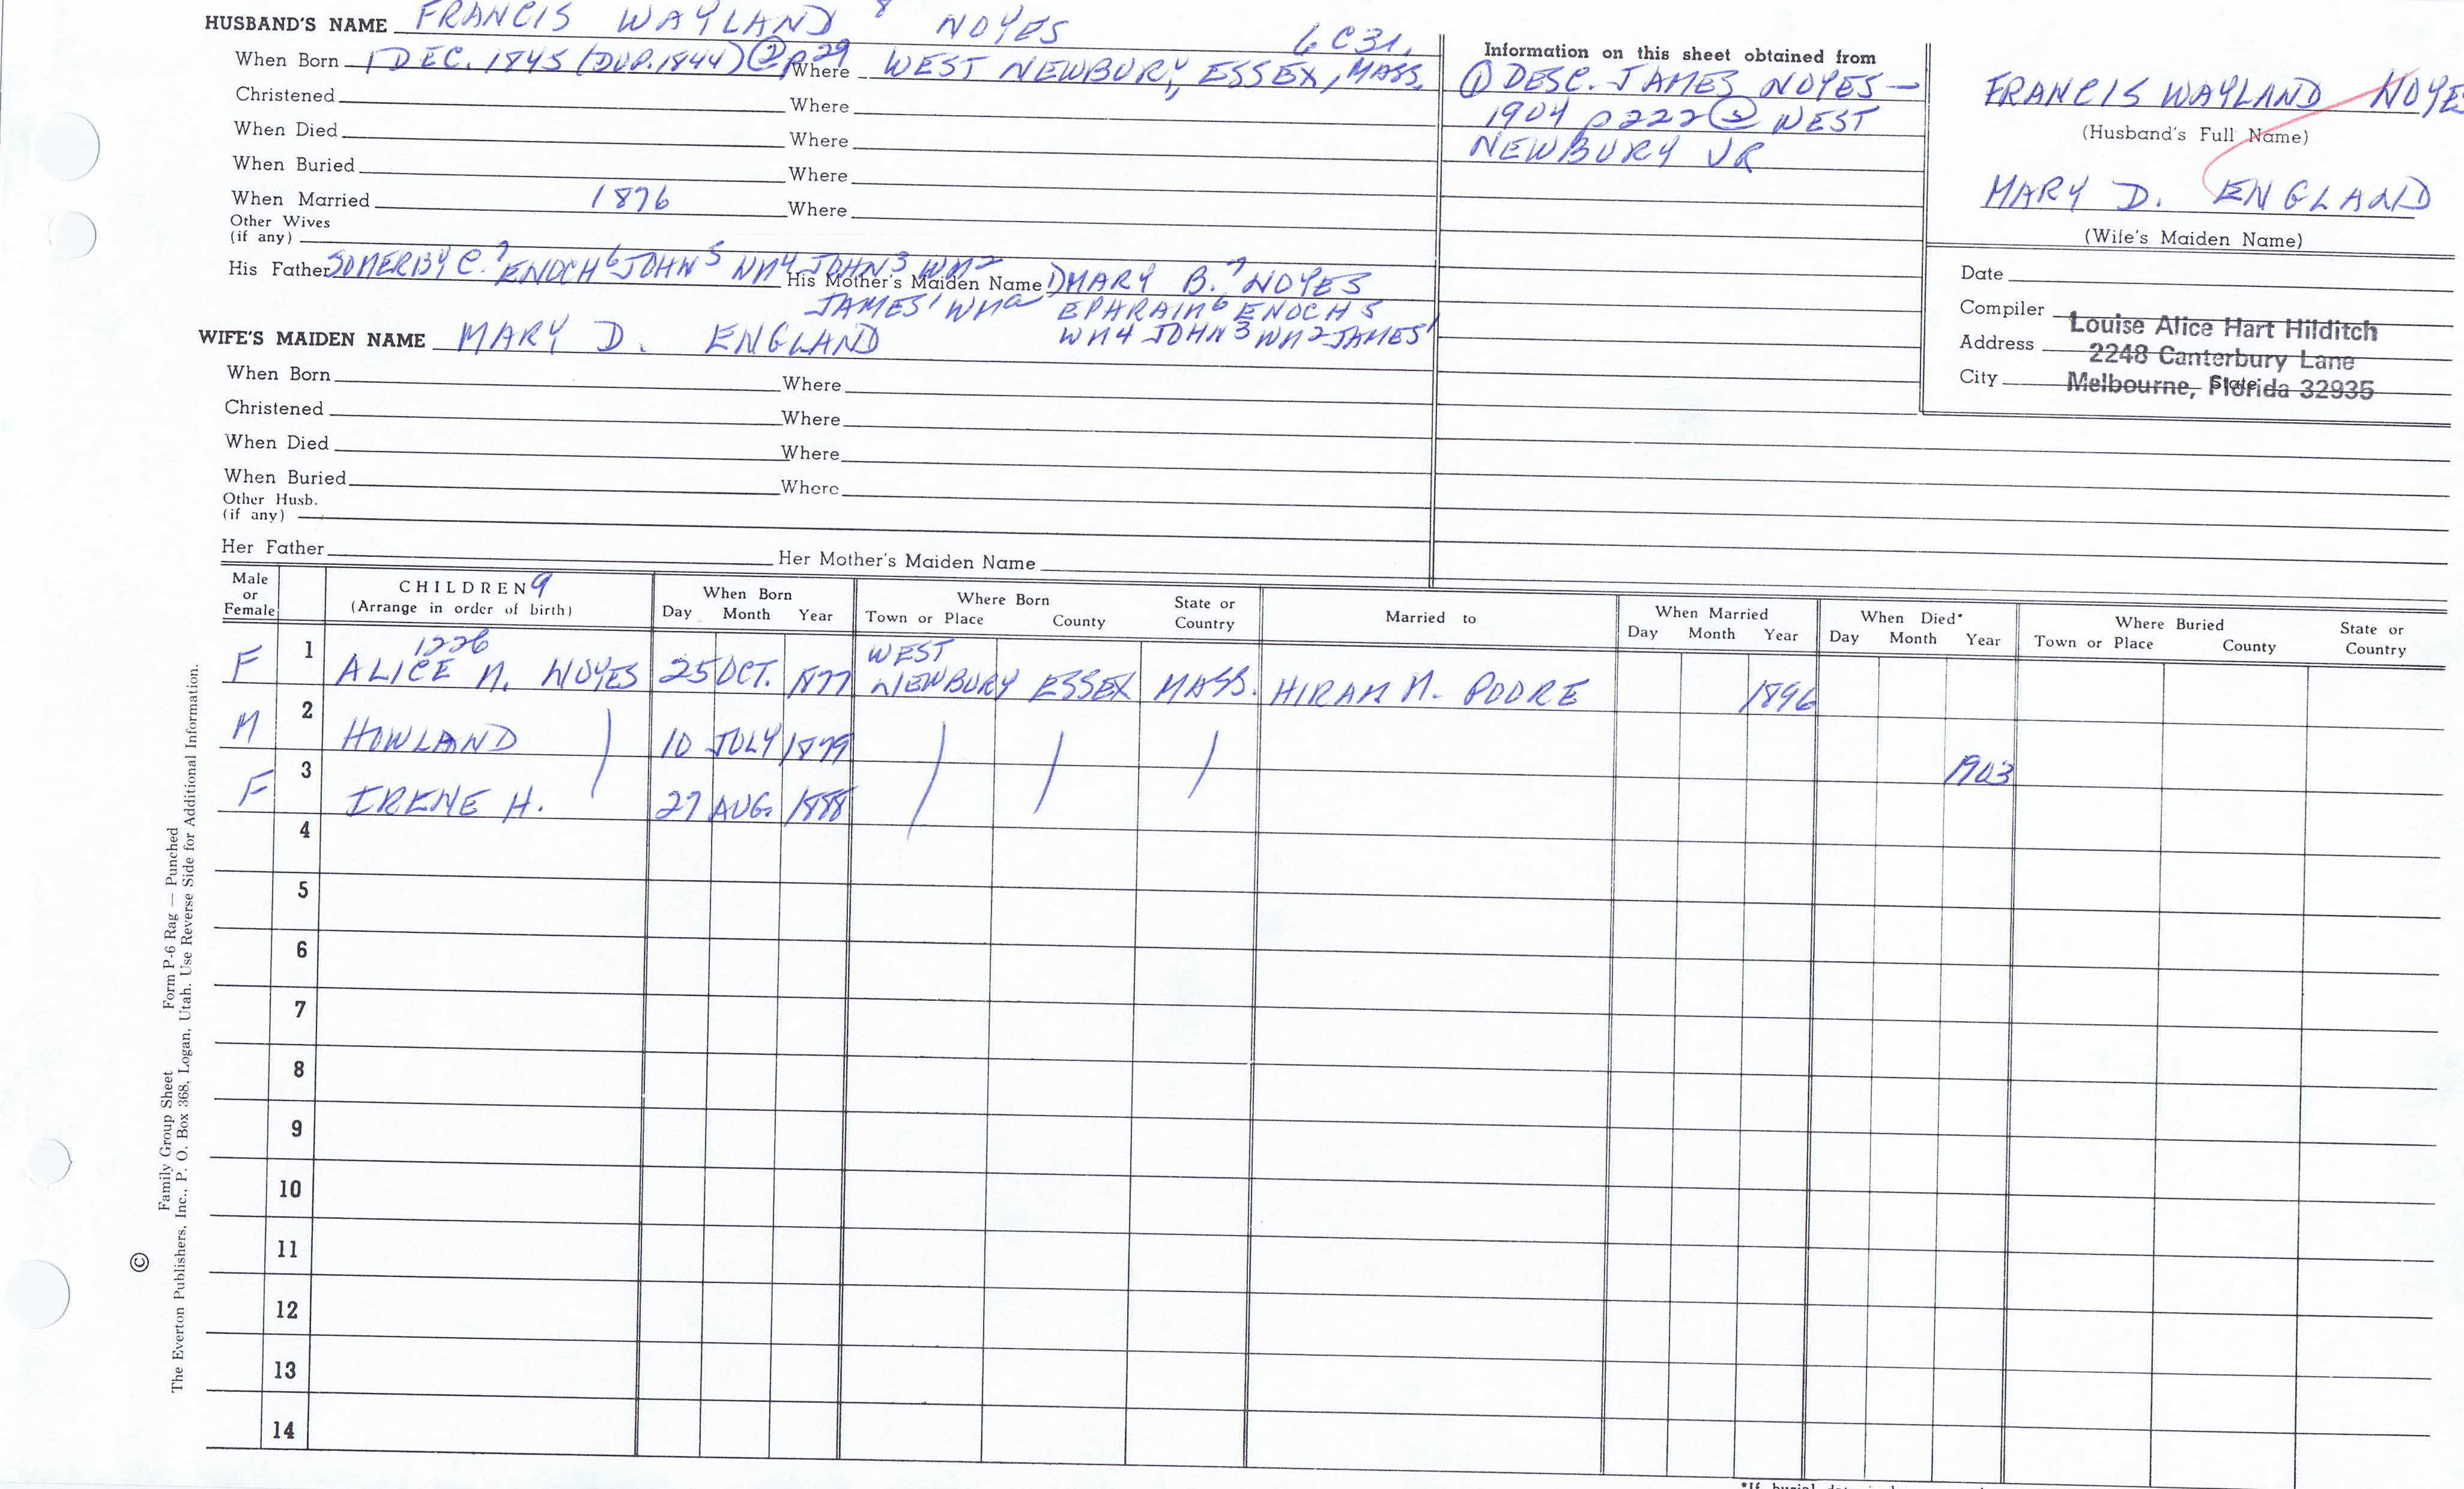 HUSBAND'S NAME FRANCIS WAYLAND 8 NOYES 6C31.
When Born 1 DEC. 1845 (DUP. 1844) ② P29 Where WEST NEWBURY, ESSEX, MASS.
Christened Where
When Died Where
When Buried Where
When Married 1876 Where
Other Wives
(if any)
His Father SOMERBY C.7 ENOCH6 JOHN5 WM4 JOHN3 WM2 His Mother's Maiden Name MARY B.7 NOYES
JAMES1 WMa EPHRAIM6 ENOCH5
WM4 JOHN3 WM2 JAMES1
WIFE'S MAIDEN NAME MARY D. ENGLAND
When Born Where
Christened Where
When Died Where
When Buried Where
Other Husb.
(if any)
Her Father Her Mother's Maiden Name
Information on this sheet obtained from
① DESC. JAMES NOYES -
1904 p222 ② WEST
NEWBURY VR
FRANCIS WAYLAND NOYES
(Husband's Full Name)
MARY D. ENGLAND
(Wife's Maiden Name)
Date
Compiler Louise Alice Hart Hilditch
Address 2248 Canterbury Lane
City State
Melbourne, Florida 32935
Male or Female CHILDREN 9 (Arrange in order of birth) When Born Day Month Year Where Born Town or Place County State or Country Married to When Married Day Month Year When Died* Day Month Year Where Buried Town or Place County State or Country
1226
F 1 ALICE M. NOYES 25 OCT. 1877 WEST NEWBURY ESSEX MASS. HIRAM M. POORE 1896
M 2 HOWLAND 10 JULY 1879
F 3 IRENE H. 27 AUG. 1888 1903
4
5
6
7
8
9
10
11
12
13
14
Family Group Sheet Form P-6 Rag — Punched
© The Everton Publishers, Inc., P. O. Box 368, Logan, Utah. Use Reverse Side for Additional Information.